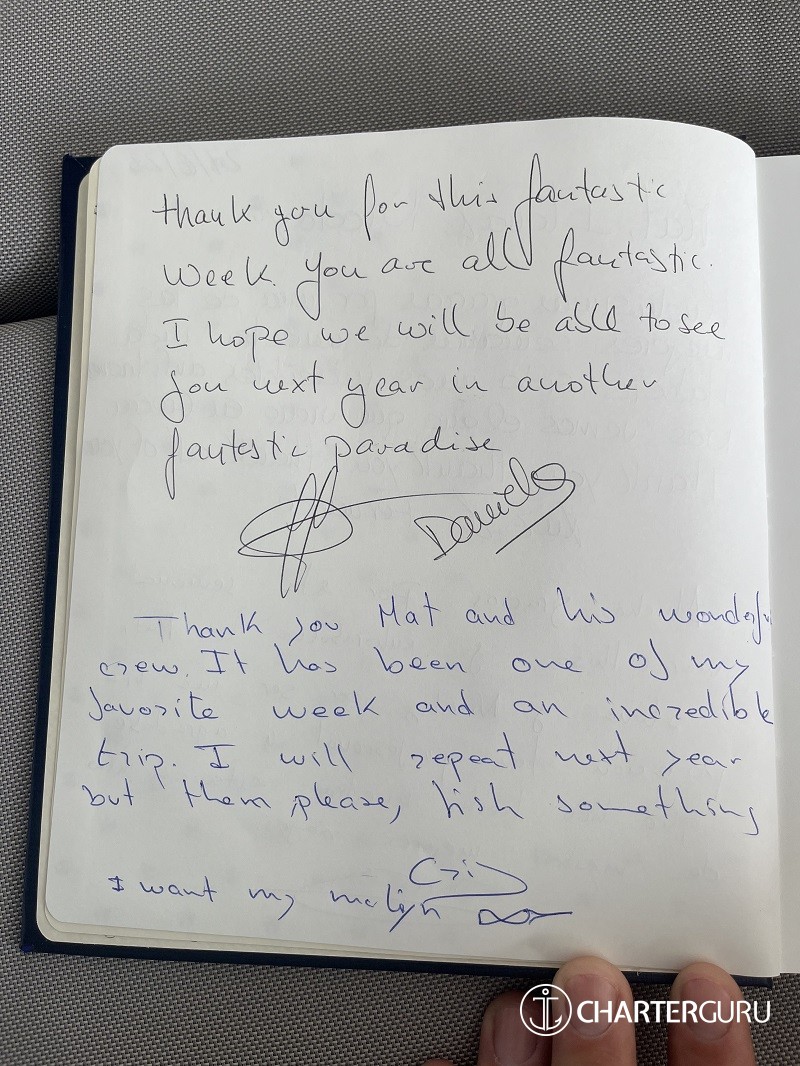 thank you for this fantastic
week. you are all fantastic.
I hope we will be able to see
you next year in another
fantastic paradise
Daniela
Thank you Mat and his wonderful
crew. It has been one of my
favorite week and an incredible
trip. I will repeat next year
but them please, fish something
Cris
I want my
CHARTERGURU